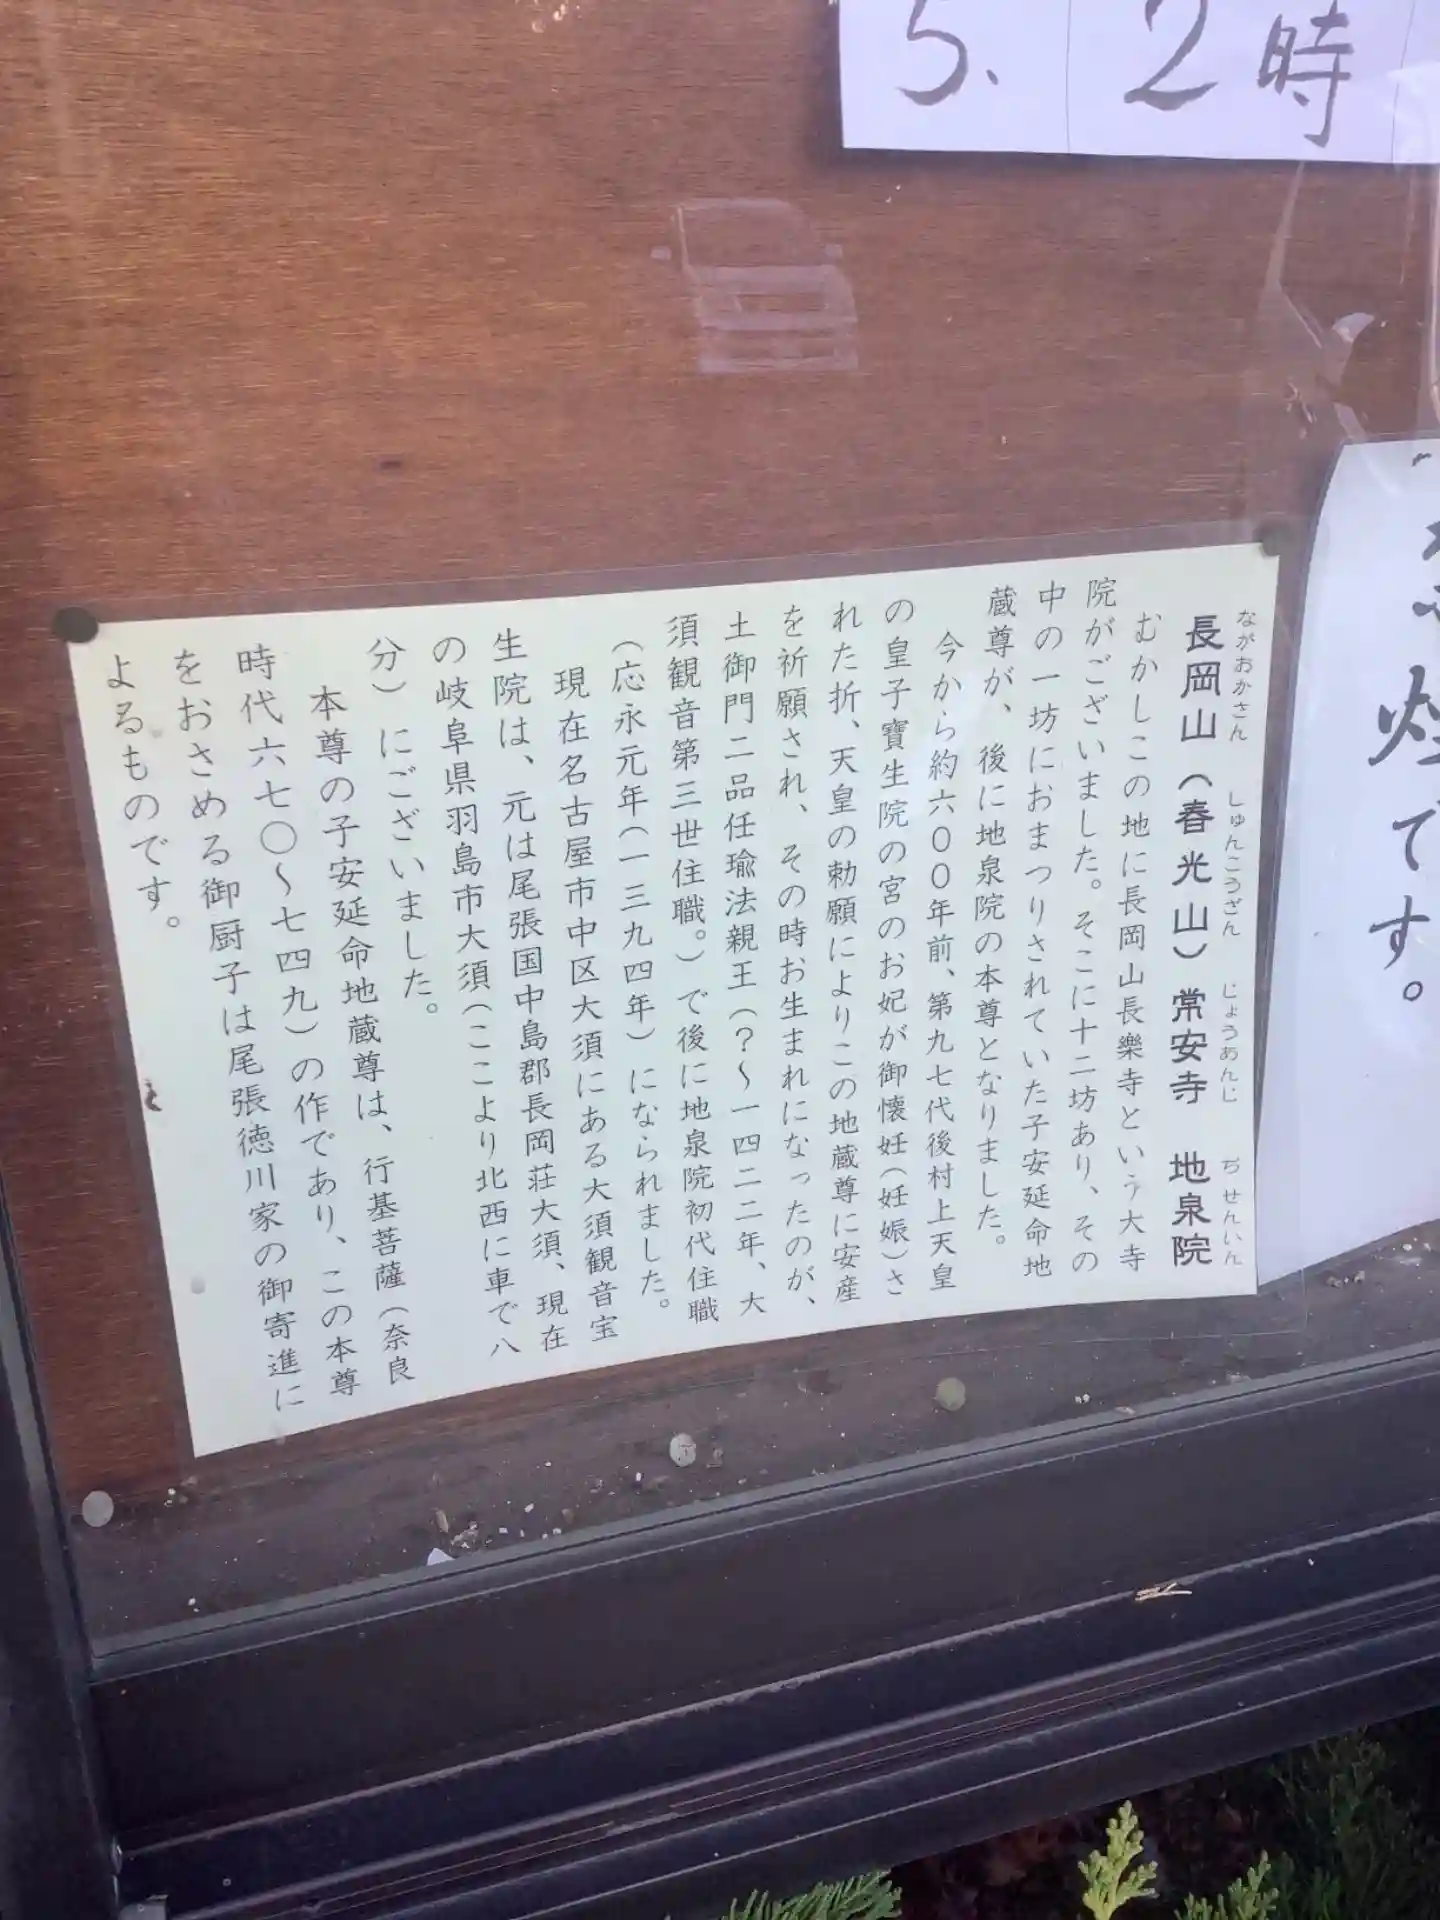 5、2時
煙です。
長岡山（春光山）常安寺　地泉院
ながおかさん　しゅんこうざん　じょうあんじ　ぢせんいん
むかしこの地に長岡山長樂寺という大寺
院がございました。そこに十二坊あり、その
中の一坊におまつりされていた子安延命地
蔵尊が、後に地泉院の本尊となりました。
今から約六００年前、第九七代後村上天皇
の皇子寶生院の宮のお妃が御懐妊（妊娠）さ
れた折、天皇の勅願によりこの地蔵尊に安産
を祈願され、その時お生まれになったのが、
土御門二品任瑜法親王（？～一四二二年、大
須観音第三世住職。）で後に地泉院初代住職
（応永元年（一三九四年）になられました。
現在名古屋市中区大須にある大須観音宝
生院は、元は尾張国中島郡長岡荘大須、現在
の岐阜県羽島市大須（ここより北西に車で八
分）にございました。
本尊の子安延命地蔵尊は、行基菩薩（奈良
時代六七〇～七四九）の作であり、この本尊
をおさめる御厨子は尾張徳川家の御寄進に
よるものです。